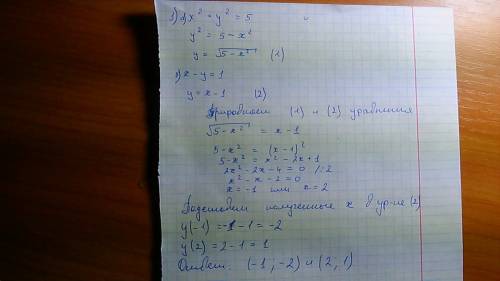 1) a) x² = y² = 5
y² = 5 - x²
y = √5-x² (1)
в) x - y = 1
y = x - 1 (2)
Приравняем (1) и (2) уравнения
√5-x² = x - 1
5-x² = (x-1)²
5-x² = x² - 2x + 1
2x² - 2x - 4 = 0 /:2
x² - x - 2 = 0
x = -1 или x = 2
Подставим полученные x в ур-ие (2)
y(-1) = -1 - 1 = -2
y(2) = 2 - 1 = 1
Ответ: (-1; -2) и (2, 1)